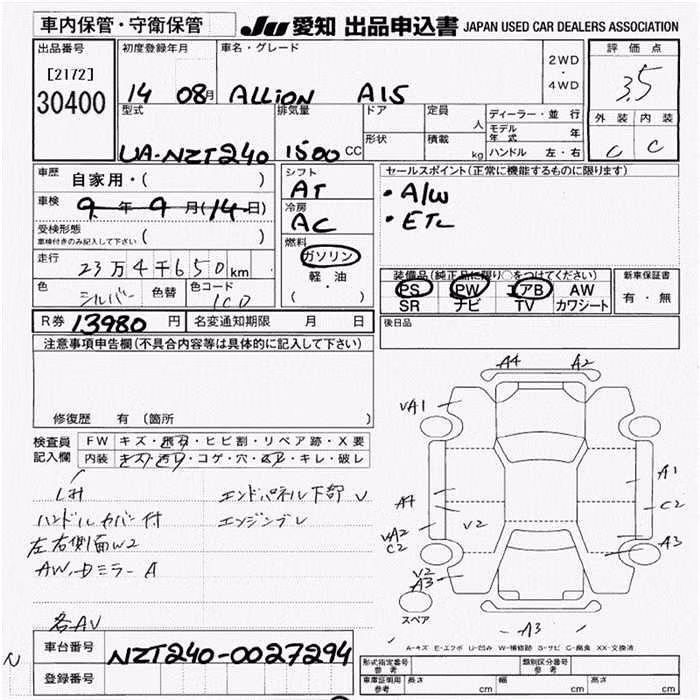 車内保管・守衛保管
JU 愛知 出品申込書 JAPAN USED CAR DEALERS ASSOCIATION
出品番号 初度登録年月 車名・グレード 2WD・4WD 評価点
[2172]
30400
14 08月 ALLION A15
3.5
型式 排気量 ドア 定員 人 ディーラー・並行
形状 積載 kg モデル年式 年
ハンドル 左・右
外装 内装
C C
UA-NZT240 1500 CC
車歴 自家用・( )
シフト AT
セールスポイント(正常に機能するものに限ります)
・A/W
・ETC
車検 9年9月(14日)
冷房 AC
受検形態 ( )
車検付きのみ記入して下さい
燃料 ガソリン
軽・油
( ・ )
走行 23万4千650km
色 シルバー 色替 色コード 1C0
装備品(純正品に限り○をつけてください)
PS PW アB AW
SR ナビ TV カワシート
新車保証書
有・無
R券 13980円 名変通知期限 月 日
後日品
注意事項申告欄(不具合内容等は具体的に記入して下さい)
修復歴 有 (箇所 )
検査員記入欄
FW キズ・飛石・ヒビ割・リペア跡・X要
内装 キズ・汚れ・コゲ・穴・キレ・破レ
ハンドルカバー付
左右側面W2
AW、ドミラーA
各AV
エンドパネル下部V
エンジンブレ
A4 A2
VA1
A1
A4
C2
VA2
C2
V2
A3
V2
A3
スペア
A3
A-キズ E-エクボ U-凹み W-補修跡 S-サビ C-腐食 XX-交換済
N
車台番号 NZT240-0027294
登録番号
形式指定番号 参考 類別区分番号 参考
車庫証明用 参考 長さ cm 幅 cm 高さ cm